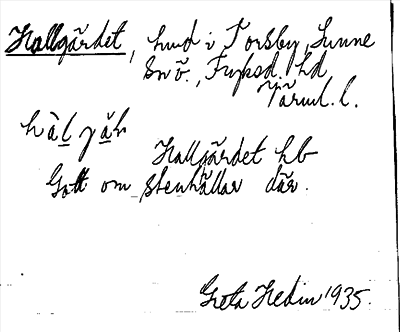 Hallgärdet, hmd i Torsby, Sunne
Snö., Fryksd. hd,
Värml. l.
hàl̲ γä̲r
Hallgärdet hb
Gott om stenhällar där.
Greta Hedin 1935.